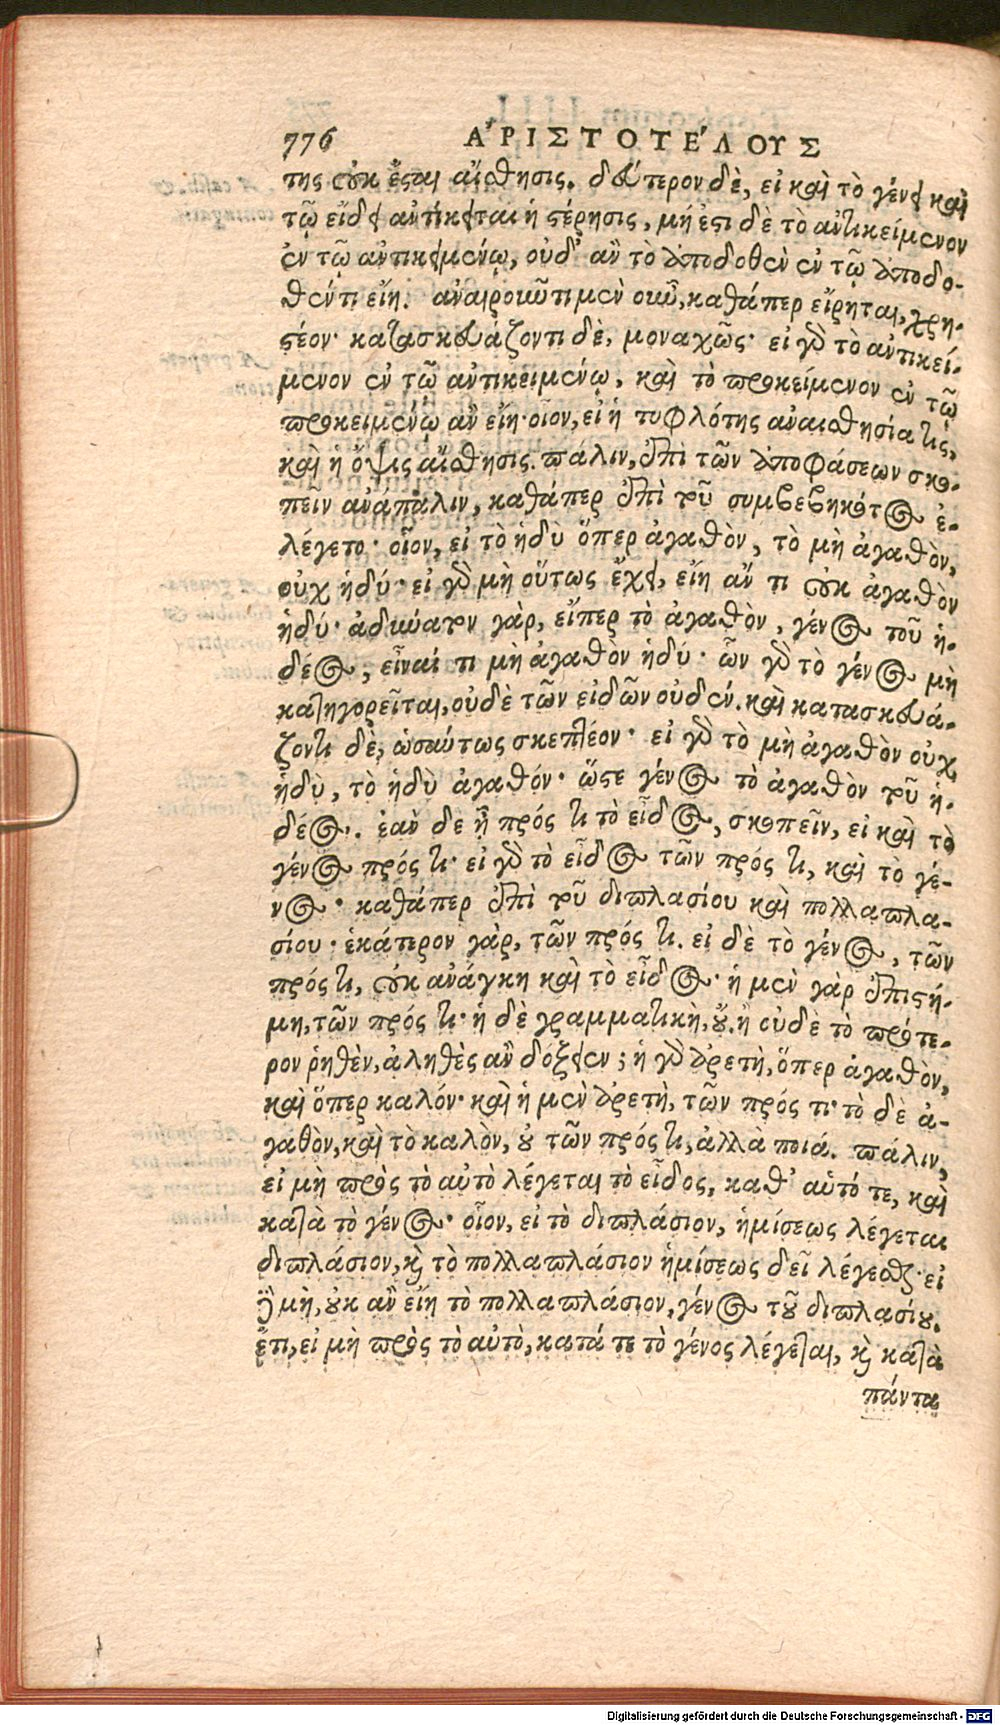 776 ΑʹΡΙΣΤΟΤΕʹΛΟΥΣ
της οὐκ ἔσται αἴσθησις. δεύτερον δὲ, εἰ καὶ τὸ γένει καὶ
τῷ εἴδει ἀντίκειται ἡ στέρησις, μή ἐστι δὲ τὸ ἀντικείμενον
ἐν τῷ ἀντικειμένῳ, οὐδ' ἂν τὸ ἀποδοθὲν ἐν τῷ ἀποδο-
θέντι εἴη. ἀναιροῦντι μὲν οὖν, καθάπερ εἴρηται, χρη-
στέον· κατασκευάζοντι δὲ, μοναχῶς· εἰ γὰρ τὸ ἀντικεί-
μενον ἐν τῷ ἀντικειμένῳ, καὶ τὸ προκείμενον ἐν τῷ
προκειμένῳ ἂν εἴη· οἷον, εἰ ἡ τυφλότης ἀναισθησία τις,
καὶ ἡ ὄψις αἴσθησις. πάλιν, ἐπὶ τῶν ἀποφάσεων σκο-
πεῖν ἀνάπαλιν, καθάπερ ἐπὶ τοῦ συμβεβηκότος ἐ-
λέγετο· οἷον, εἰ τὸ ἡδὺ ὅπερ ἀγαθὸν, τὸ μὴ ἀγαθὸν,
οὐχ ἡδύ· εἰ γὰρ μὴ οὕτως ἔχει, εἴη ἄν τι οὐκ ἀγαθὸν
ἡδύ· ἀδύνατον γὰρ, εἴπερ τὸ ἀγαθὸν, γένος τοῦ ἡ-
δέος, εἶναί τι μὴ ἀγαθὸν ἡδύ· ὧν γὰρ τὸ γένος μὴ
κατηγορεῖται, οὐδὲ τῶν εἰδῶν οὐδέν. καὶ κατασκευά-
ζοντι δὲ, ὡσαύτως σκεπτέον· εἰ γὰρ τὸ μὴ ἀγαθὸν οὐχ
ἡδὺ, τὸ ἡδὺ ἀγαθόν· ὥστε γένος τὸ ἀγαθὸν τοῦ ἡ-
δέος. ἐὰν δὲ ᾖ πρός τι τὸ εἶδος, σκοπεῖν, εἰ καὶ τὸ
γένος πρός τι· εἰ γὰρ τὸ εἶδος τῶν πρός τι, καὶ τὸ γέ-
νος· καθάπερ ἐπὶ τοῦ διπλασίου καὶ πολλαπλα-
σίου· ἑκάτερον γὰρ, τῶν πρός τι. εἰ δὲ τὸ γένος, τῶν
πρός τι, οὐκ ἀνάγκη καὶ τὸ εἶδος· ἡ μὲν γὰρ ἐπιστή-
μη, τῶν πρός τι· ἡ δὲ γραμματικὴ, οὔ. ἢ οὐδὲ τὸ πρότε-
ρον ῥηθὲν, ἀληθὲς ἂν δόξειεν; ἡ γὰρ ἀρετὴ, ὅπερ ἀγαθὸν,
καὶ ὅπερ καλόν· καὶ ἡ μὲν ἀρετὴ, τῶν πρός τι· τὸ δὲ ἀ-
γαθὸν, καὶ τὸ καλὸν, οὐ τῶν πρός τι, ἀλλὰ ποιά. πάλιν,
εἰ μὴ πρὸς τὸ αὐτὸ λέγεται τὸ εἶδος, καθ' αὑτό τε, καὶ
κατὰ τὸ γένος· οἷον, εἰ τὸ διπλάσιον, ἡμίσεως λέγεται
διπλάσιον, καὶ τὸ πολλαπλάσιον ἡμίσεως δεῖ λέγεσθαι· εἰ
γὰρ μὴ, οὐκ ἂν εἴη τὸ πολλαπλάσιον, γένος τοῦ διπλασίου.
ἔτι, εἰ μὴ πρὸς τὸ αὐτὸ, κατά τε τὸ γένος λέγεται, καὶ κατὰ
πάντα
Digitalisierung gefördert durch die Deutsche Forschungsgemeinschaft - DFG